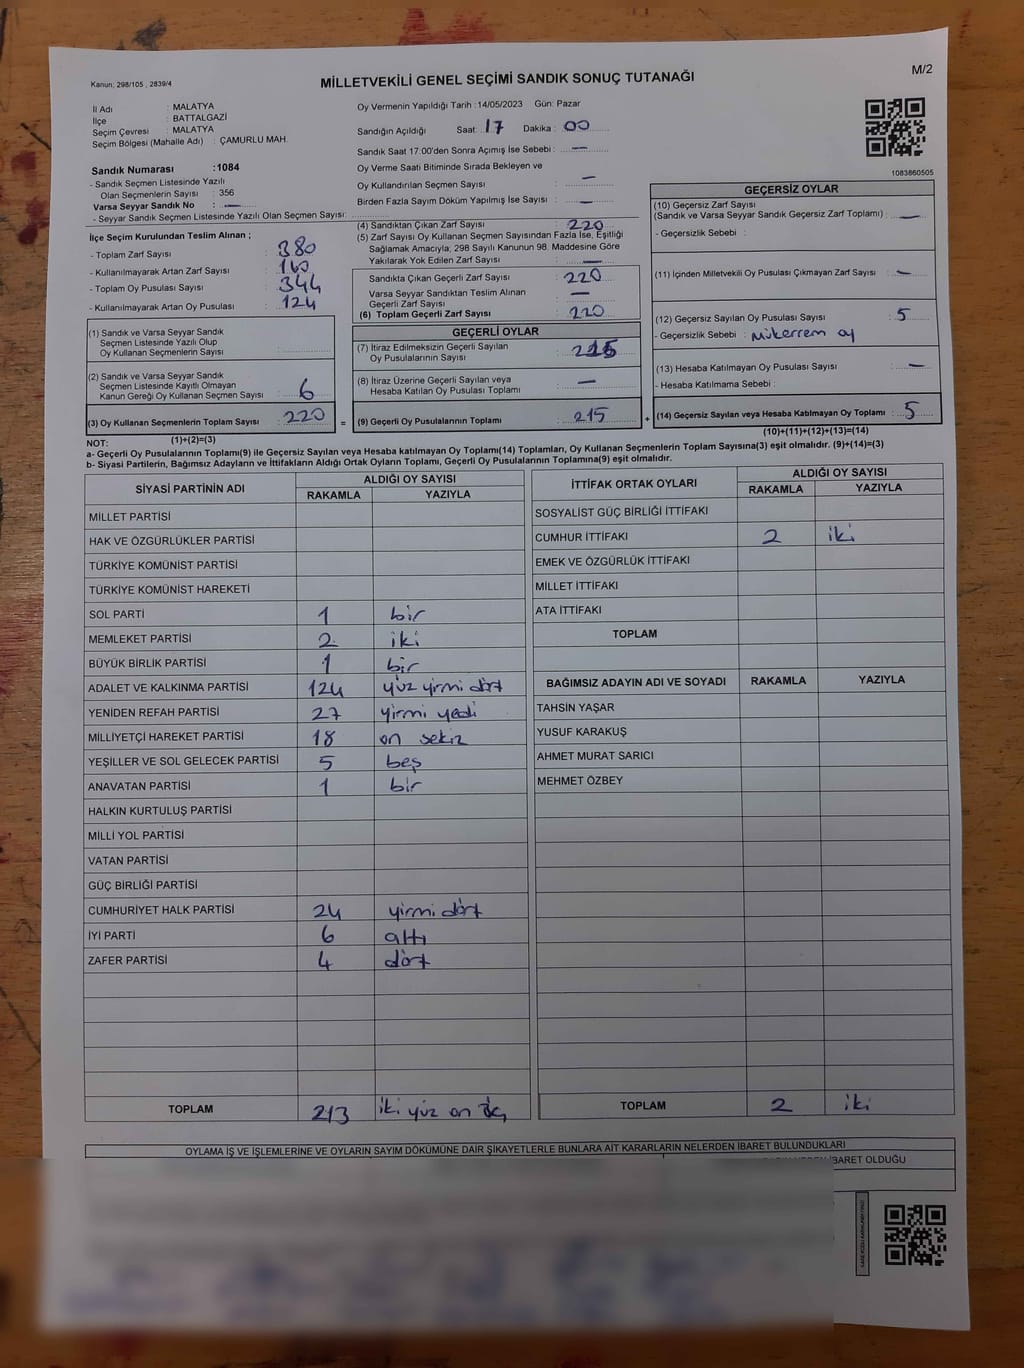 Kanun; 298/105 , 2839/4
MİLLETVEKİLİ GENEL SEÇİMİ SANDIK SONUÇ TUTANAĞI
M/2
İl Adı : MALATYA
İlçe : BATTALGAZİ
Seçim Çevresi : MALATYA
Seçim Bölgesi (Mahalle Adı) : ÇAMURLU MAH.
Oy Vermenin Yapıldığı Tarih : 14/05/2023 Gün: Pazar
Sandığın Açıldığı Saat: 17 Dakika: 00
Sandık Saat 17:00'den Sonra Açımış İse Sebebi : —
Oy Verme Saati Bitiminde Sırada Bekleyen ve
Oy Kullandırılan Seçmen Sayısı : —
Birden Fazla Sayım Döküm Yapılmış İse Sayısı : —
1083860505
Sandık Numarası :1084
- Sandık Seçmen Listesinde Yazılı
Olan Seçmenlerin Sayısı : 356
Varsa Seyyar Sandık No : —
- Seyyar Sandık Seçmen Listesinde Yazılı Olan Seçmen Sayısı:
İlçe Seçim Kurulundan Teslim Alınan ;
- Toplam Zarf Sayısı : 380
- Kullanılmayarak Artan Zarf Sayısı : 160
- Toplam Oy Pusulası Sayısı : 344
- Kullanılmayarak Artan Oy Pusulası : 124
(1) Sandık ve Varsa Seyyar Sandık
Seçmen Listesinde Yazılı Olup
Oy Kullanan Seçmenlerin Sayısı :
(2) Sandık ve Varsa Seyyar Sandık
Seçmen Listesinde Kayıtlı Olmayan
Kanun Gereği Oy Kullanan Seçmen Sayısı : 6
(3) Oy Kullanan Seçmenlerin Toplam Sayısı : 220
(1)+(2)=(3)
(4) Sandıktan Çıkan Zarf Sayısı : 220
(5) Zarf Sayısı Oy Kullanan Seçmen Sayısından Fazla İse, Eşitliği
Sağlamak Amacıyla, 298 Sayılı Kanunun 98. Maddesine Göre
Yakılarak Yok Edilen Zarf Sayısı : —
Sandıkta Çıkan Geçerli Zarf Sayısı : 220
Varsa Seyyar Sandıktan Teslim Alınan
Geçerli Zarf Sayısı : —
(6) Toplam Geçerli Zarf Sayısı : 220
GEÇERLİ OYLAR
(7) İtiraz Edilmeksizin Geçerli Sayılan
Oy Pusulalarının Sayısı : 215
(8) İtiraz Üzerine Geçerli Sayılan veya
Hesaba Katılan Oy Pusulası Toplamı : —
= (9) Geçerli Oy Pusulalarının Toplamı : 215
GEÇERSİZ OYLAR
(10) Geçersiz Zarf Sayısı
(Sandık ve Varsa Seyyar Sandık Geçersiz Zarf Toplamı) : —
- Geçersizlik Sebebi :
(11) İçinden Milletvekili Oy Pusulası Çıkmayan Zarf Sayısı : —
(12) Geçersiz Sayılan Oy Pusulası Sayısı : 5
- Geçersizlik Sebebi : Mükerrem oy
(13) Hesaba Katılmayan Oy Pusulası Sayısı : —
- Hesaba Katılmama Sebebi :
+ (14) Geçersiz Sayılan veya Hesaba Katılmayan Oy Toplamı : 5
(10)+(11)+(12)+(13)=(14)
NOT:
a- Geçerli Oy Pusulalarının Toplamı(9) ile Geçersiz Sayılan veya Hesaba katılmayan Oy Toplamı(14) Toplamları, Oy Kullanan Seçmenlerin Toplam Sayısına(3) eşit olmalıdır. (9)+(14)=(3)
b- Siyasi Partilerin, Bağımsız Adayların ve İttifakların Aldığı Ortak Oyların Toplamı, Geçerli Oy Pusulalarının Toplamına(9) eşit olmalıdır.
SİYASİ PARTİNİN ADI ALDIĞI OY SAYISI
RAKAMLA YAZIYLA
MİLLET PARTİSİ
HAK VE ÖZGÜRLÜKLER PARTİSİ
TÜRKİYE KOMÜNİST PARTİSİ
TÜRKİYE KOMÜNİST HAREKETİ
SOL PARTİ 1 bir
MEMLEKET PARTİSİ 2 iki
BÜYÜK BİRLİK PARTİSİ 1 bir
ADALET VE KALKINMA PARTİSİ 124 yüz yirmi dört
YENİDEN REFAH PARTİSİ 27 yirmi yedi
MİLLİYETÇİ HAREKET PARTİSİ 18 on sekiz
YEŞİLLER VE SOL GELECEK PARTİSİ 5 beş
ANAVATAN PARTİSİ 1 bir
HALKIN KURTULUŞ PARTİSİ
MİLLİ YOL PARTİSİ
VATAN PARTİSİ
GÜÇ BİRLİĞİ PARTİSİ
CUMHURİYET HALK PARTİSİ 24 yirmi dört
İYİ PARTİ 6 altı
ZAFER PARTİSİ 4 dört
TOPLAM 213 iki yüz on üç
İTTİFAK ORTAK OYLARI ALDIĞI OY SAYISI
RAKAMLA YAZIYLA
SOSYALİST GÜÇ BİRLİĞİ İTTİFAKI
CUMHUR İTTİFAKI 2 iki
EMEK VE ÖZGÜRLÜK İTTİFAKI
MİLLET İTTİFAKI
ATA İTTİFAKI
TOPLAM
BAĞIMSIZ ADAYIN ADI VE SOYADI RAKAMLA YAZIYLA
TAHSİN YAŞAR
YUSUF KARAKUŞ
AHMET MURAT SARICI
MEHMET ÖZBEY
TOPLAM 2 iki
OYLAMA İŞ VE İŞLEMLERİNE VE OYLARIN SAYIM DÖKÜMÜNE DAİR ŞİKAYETLERLE BUNLARA AİT KARARLARIN NELERDEN İBARET BULUNDUKLARI
İBARET OLDUĞU